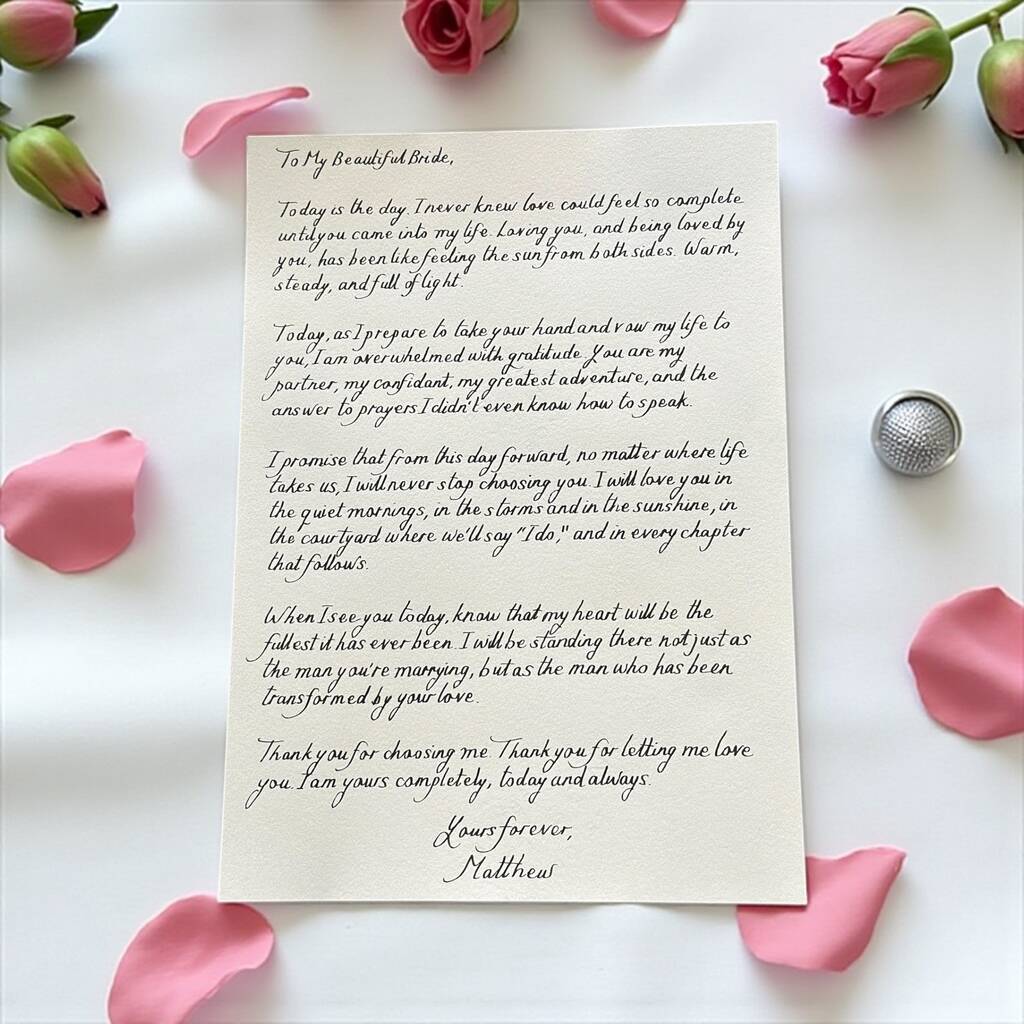 To My Beautiful Bride,
Today is the day. I never knew love could feel so complete
until you came into my life. Loving you, and being loved by
you, has been like feeling the sun from both sides. Warm,
steady, and full of light.
Today, as I prepare to take your hand and vow my life to
you, I am overwhelmed with gratitude. You are my
partner, my confidant, my greatest adventure, and the
answer to prayers I didn't even know how to speak.
I promise that from this day forward, no matter where life
takes us, I will never stop choosing you. I will love you in
the quiet mornings, in the storms and in the sunshine, in
the courtyard where we'll say "I do," and in every chapter
that follows.
When I see you today, know that my heart will be the
fullest it has ever been. I will be standing there not just as
the man you're marrying, but as the man who has been
transformed by your love.
Thank you for choosing me. Thank you for letting me love
you. I am yours completely, today and always.
Yours forever,
Matthew